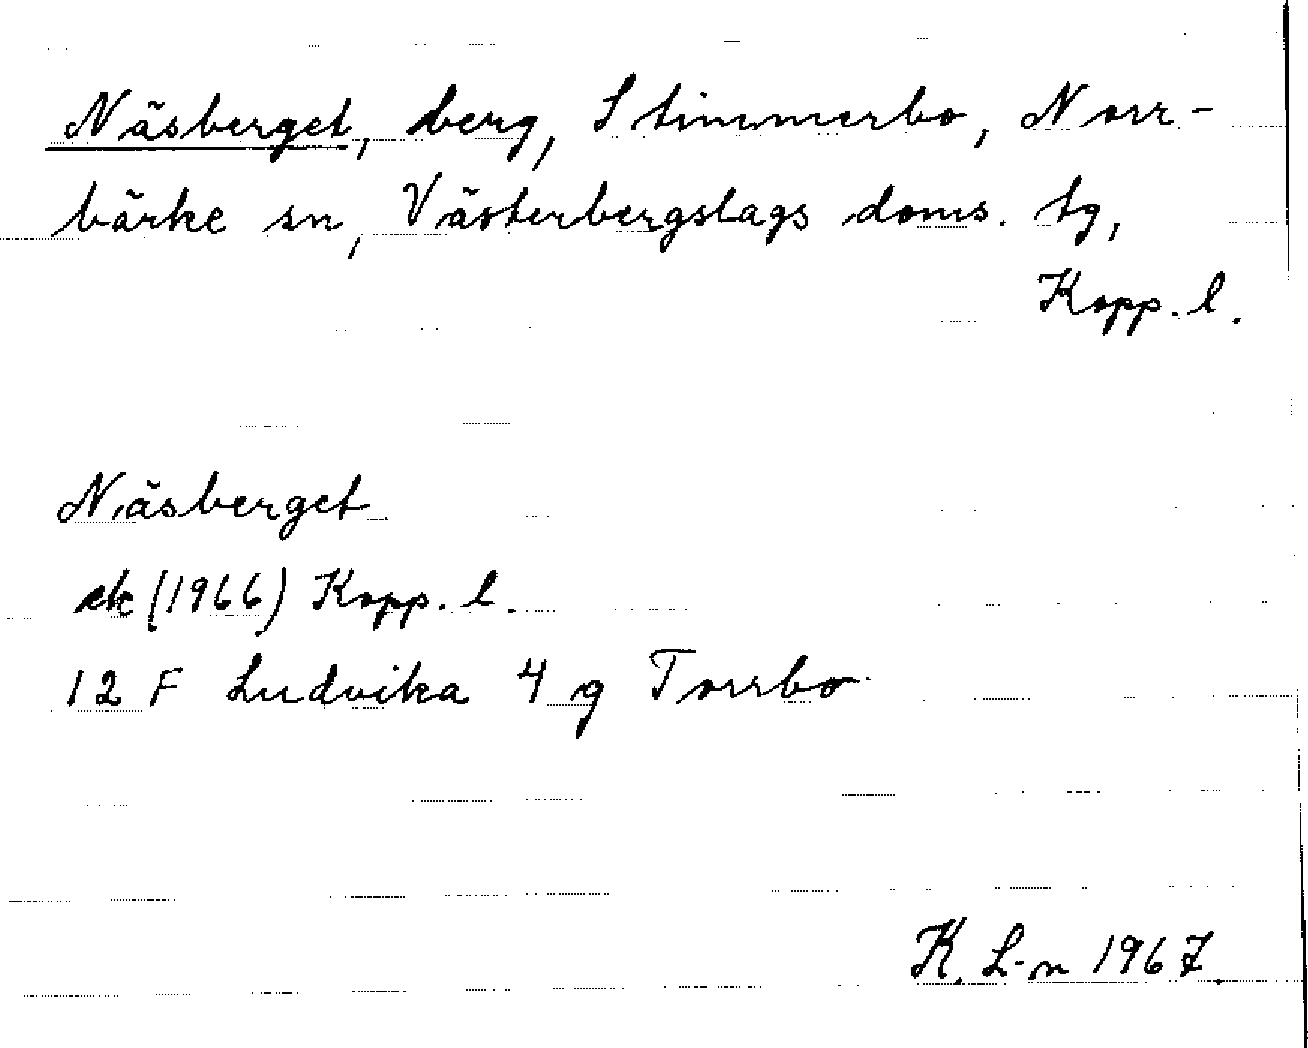 Näsberget, berg, Stimmerbo, Norr-
bärke sn, Västerbergslags doms. tg,
Kopp. l.
Näsberget
ek (1966) Kopp. l.
12 F Ludvika 4 g Torrbo
K. L-n 1967.